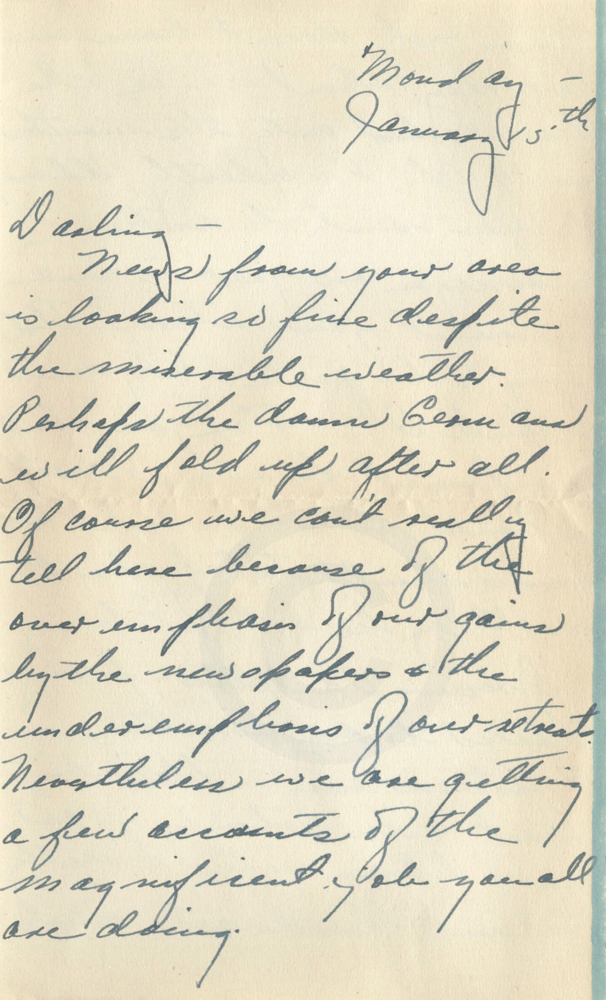 Monday —
January 15th
Darling —
News from your area
is looking so fine despite
the miserable weather.
Perhaps the damn Germans
will fold up after all.
Of course we can't really
tell here because of the
over emphasis of our gains
by the newspapers & the
under emphasis of our retreats.
Nevertheless we are getting
a few accounts of the
magnificent job you all
are doing.